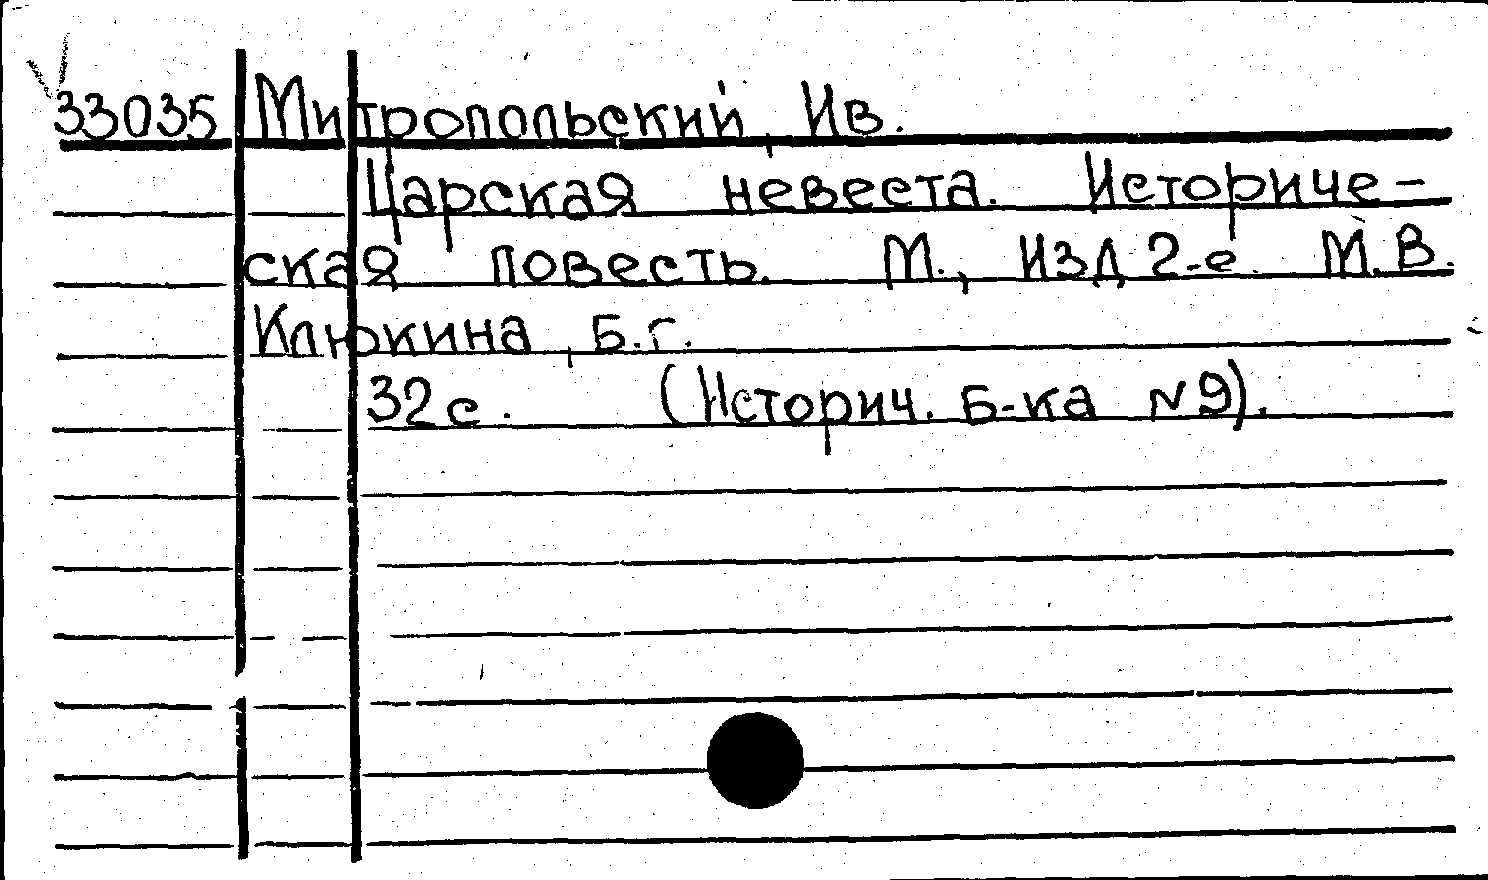 33035 Митропольский, Ив.
Царская невеста. Историче-
ская повесть. М., изд 2-е. М.В.
Клюкина, Б.г.
32 с. (Историч. Б-ка N9).